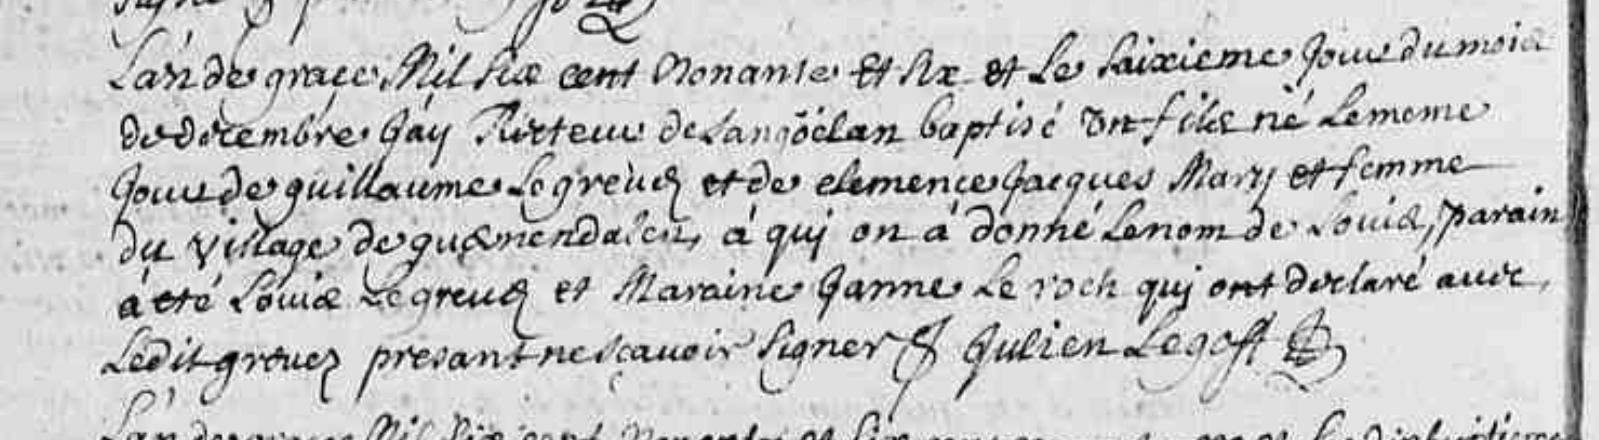 L'an de grace Mil six cent Nonante et six et Le saixieme Jour du mois
de decembre J'ay Recteur de Langöelan baptisé un fils né Le meme
Jour de guillaume Le greuez et de clemence Jacques Mary et femme
du village de guemendalen, à qui on a donné Le nom de Louis, parain
à eté Louis Le greuez et Maraine Janne Le roch qui ont declaré avec
Ledit greuez presant ne sçavoir signer Julien Le goff
L'an de grace Mil Six cent Nonante et Six